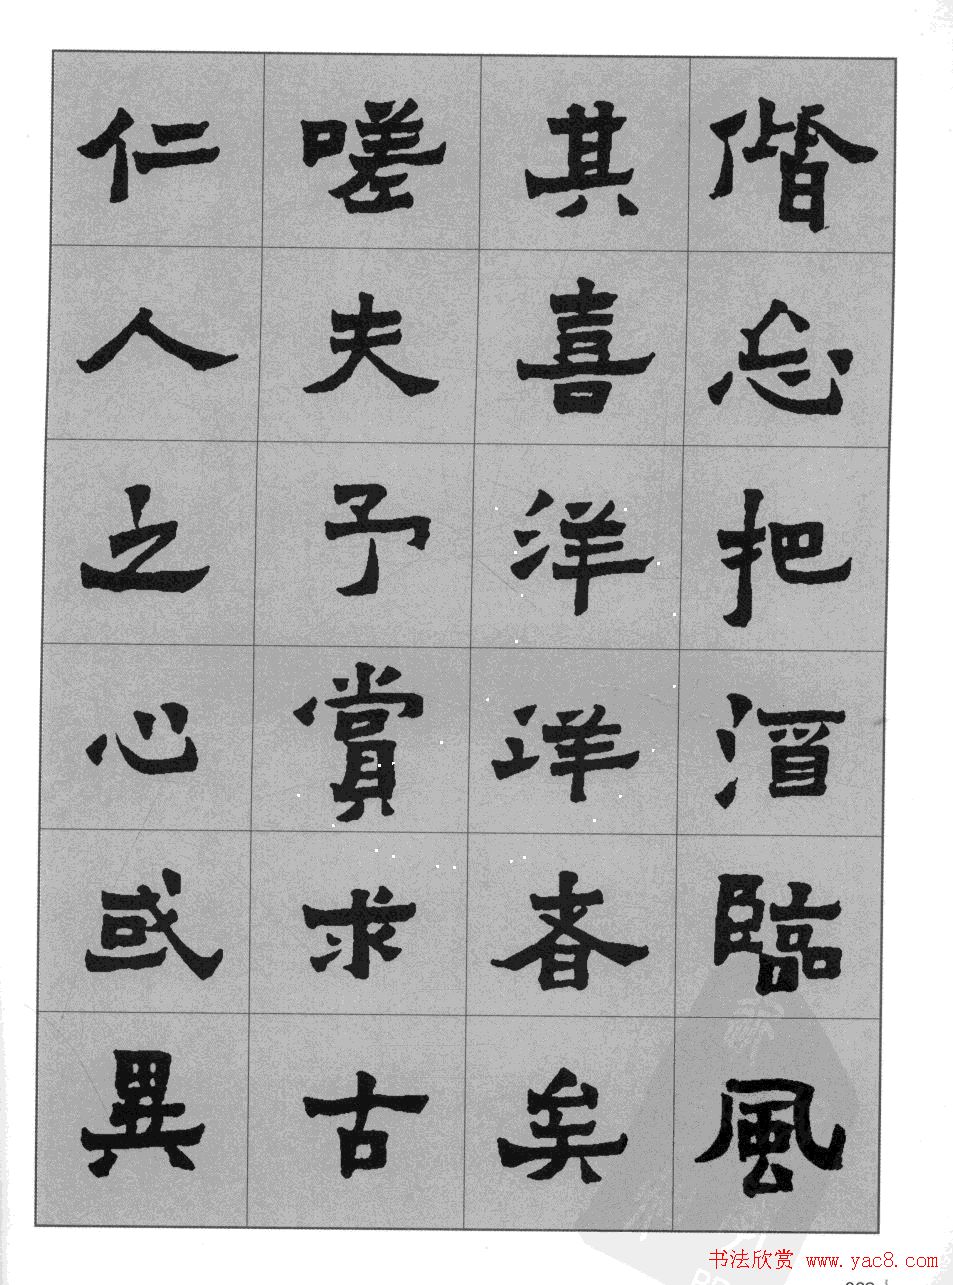 偕忘把酒臨風
其喜洋洋者矣
嗟夫予賞求古
仁人之心或異
书法欣赏 www.yac8.com